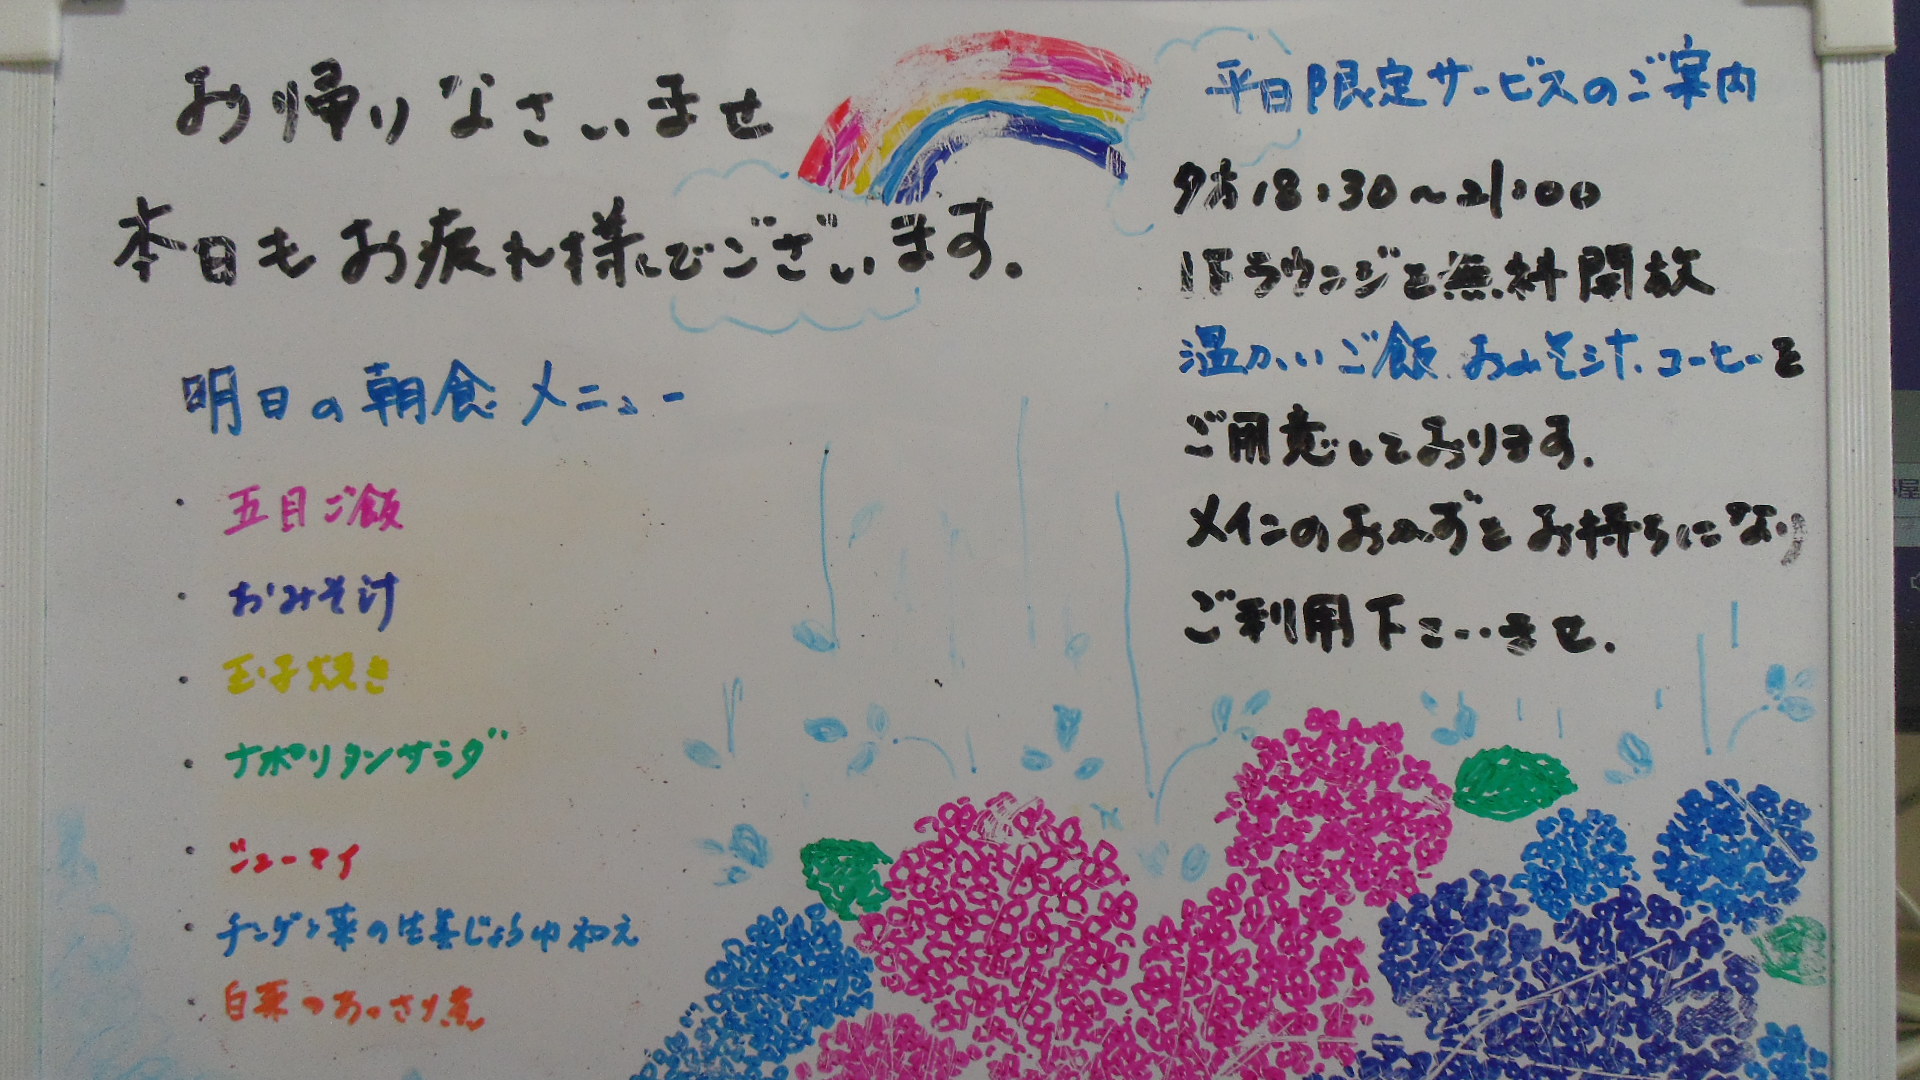 お帰りなさいませ
本日もお疲れ様でございます。
明日の朝食メニュー
・五目ご飯
・おみそ汁
・玉子焼き
・ナポリタンサラダ
・シューマイ
・チンゲン菜の生姜じょうゆ和え
・白菜のあっさり煮
平日限定サービスのご案内
夕方18:30～21:00
1Fラウンジを無料開放
温かいご飯、おみそ汁、コーヒーを
ご用意しております。
メインのおかずをお持ちになり
ご利用下さいませ。